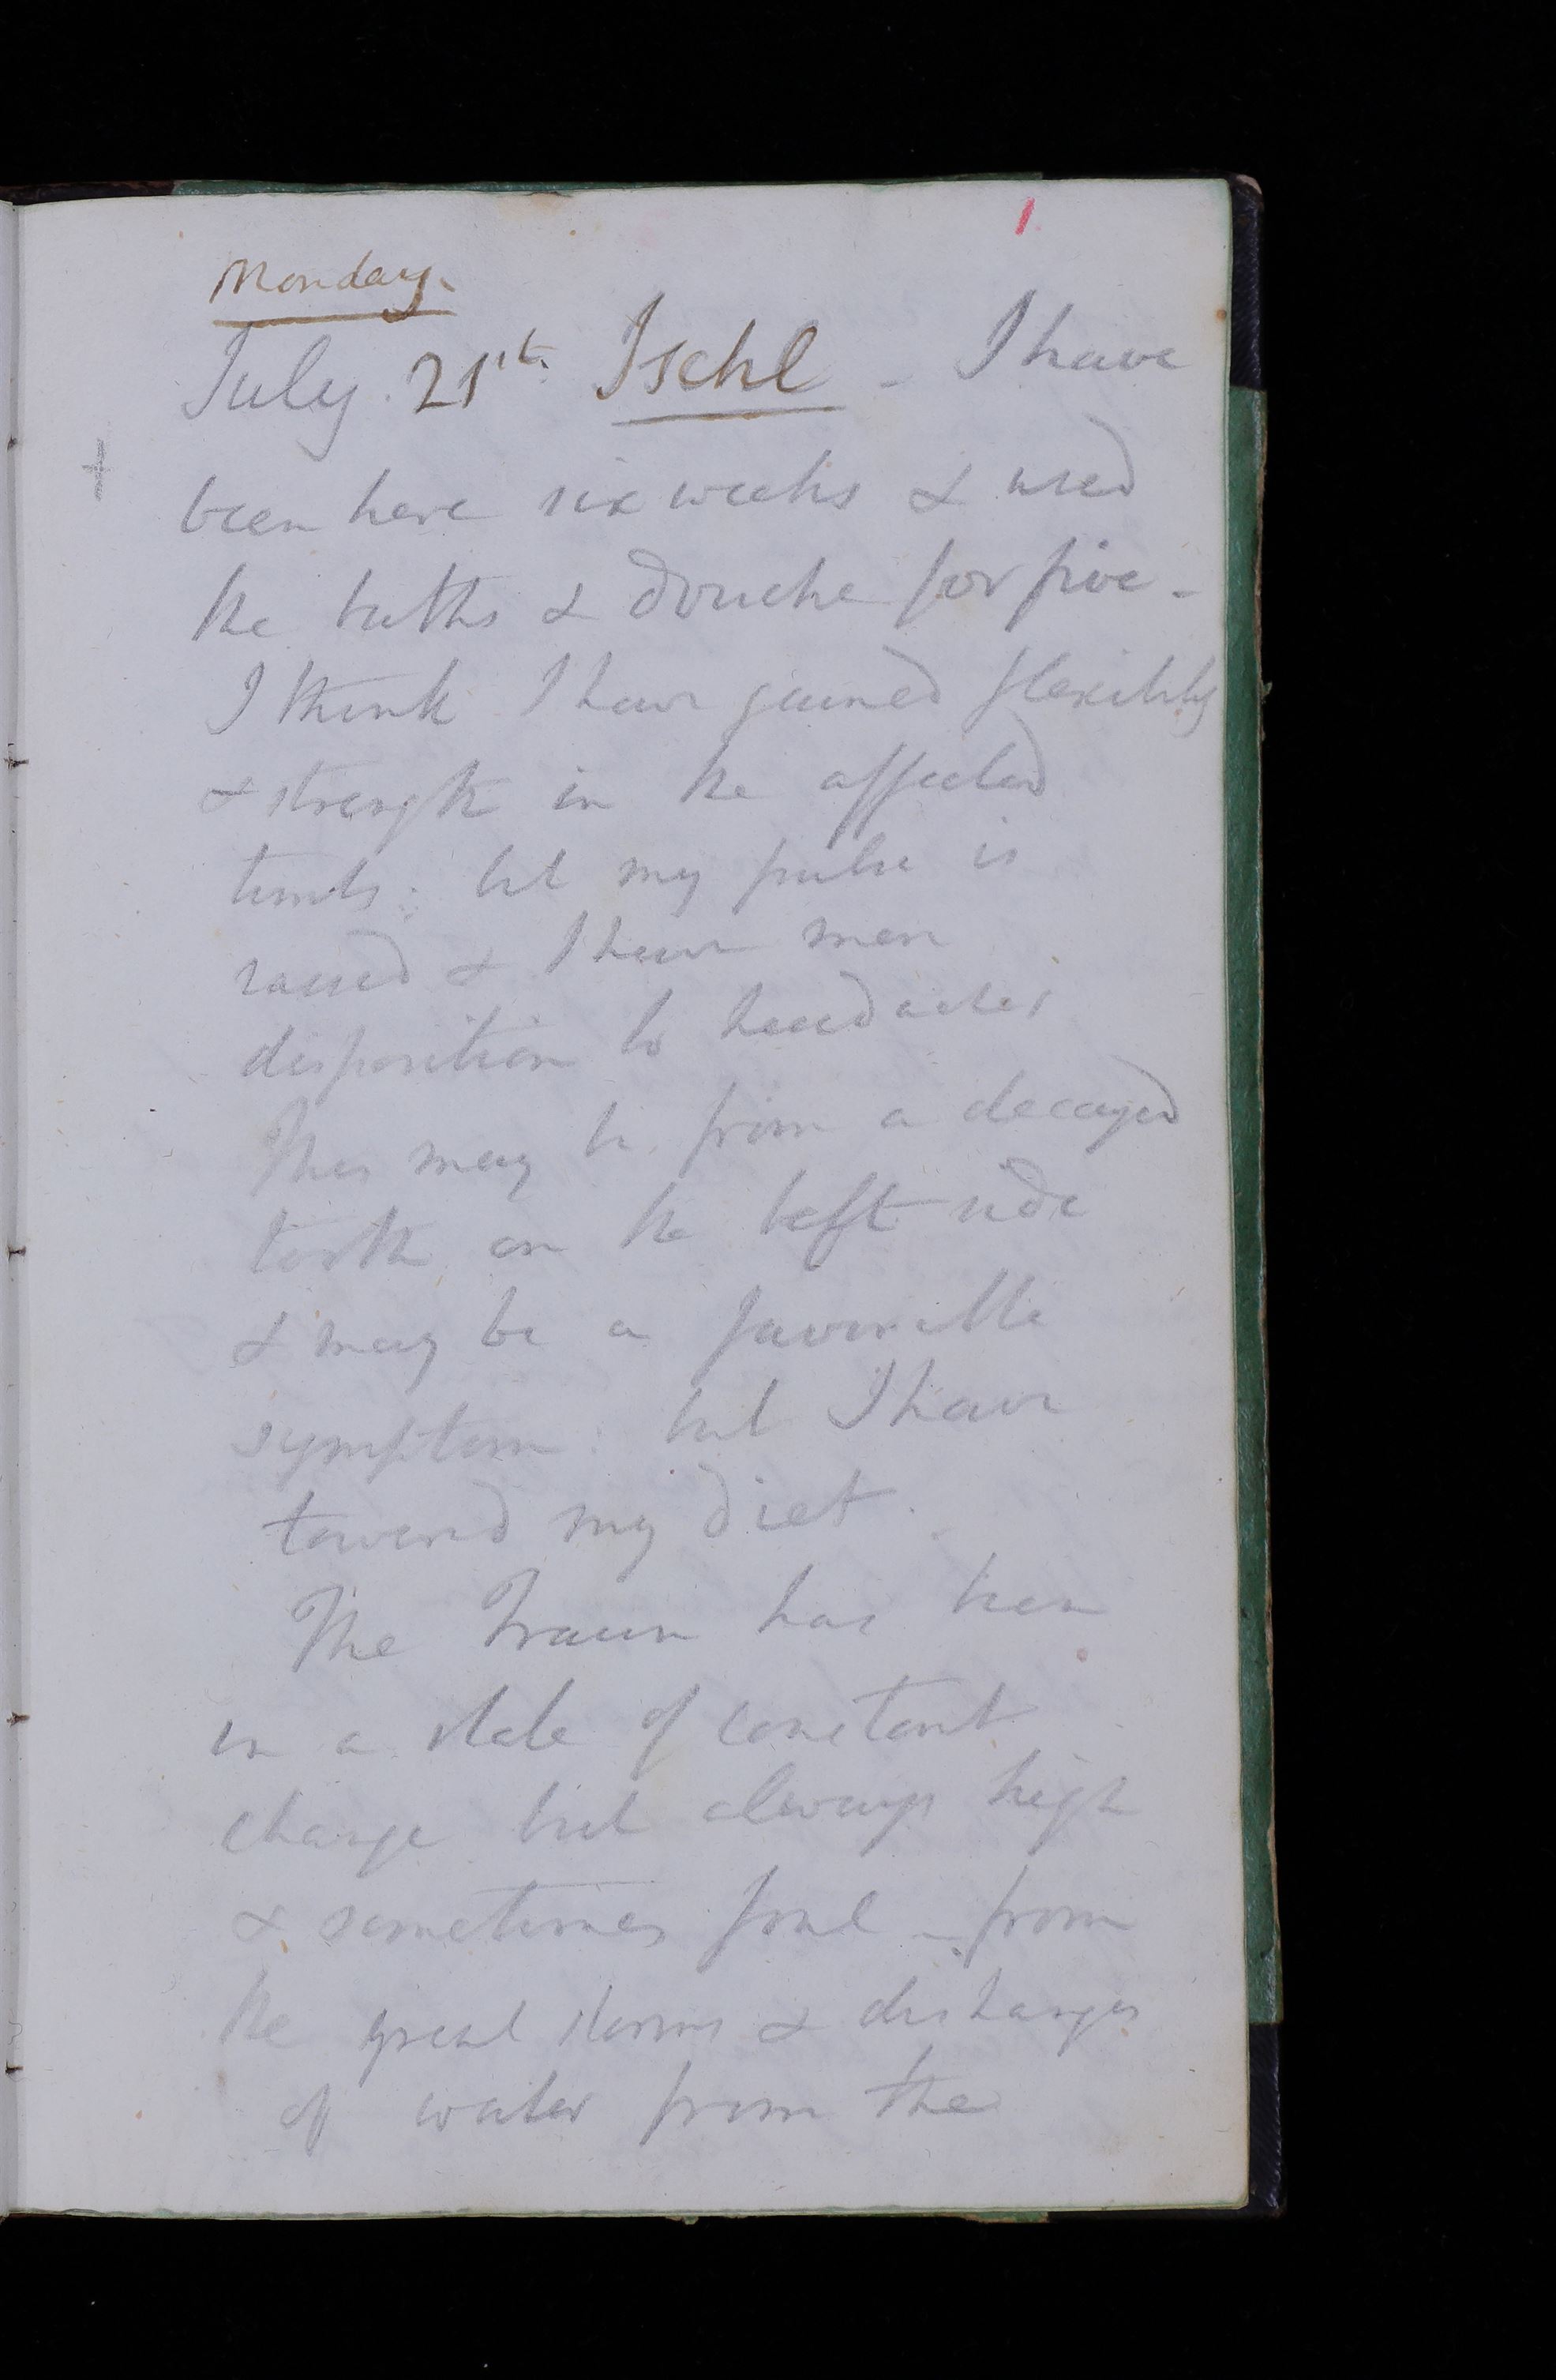 1
Monday.
July. 21st. Ischl - I have
+
been here six weeks & used
the baths & douche for five -
I think I have gained flexibility
& strength in the affected
limbs: but my pulse is
raised & I have more
disposition to headaches
This may be from a decayed
tooth on the left side
& may be a favorable
symptom: but I have
lowered my diet.
The Traun has been
in a state of constant
change but always high
& sometimes foul - from
the great storms & discharges
of water from the